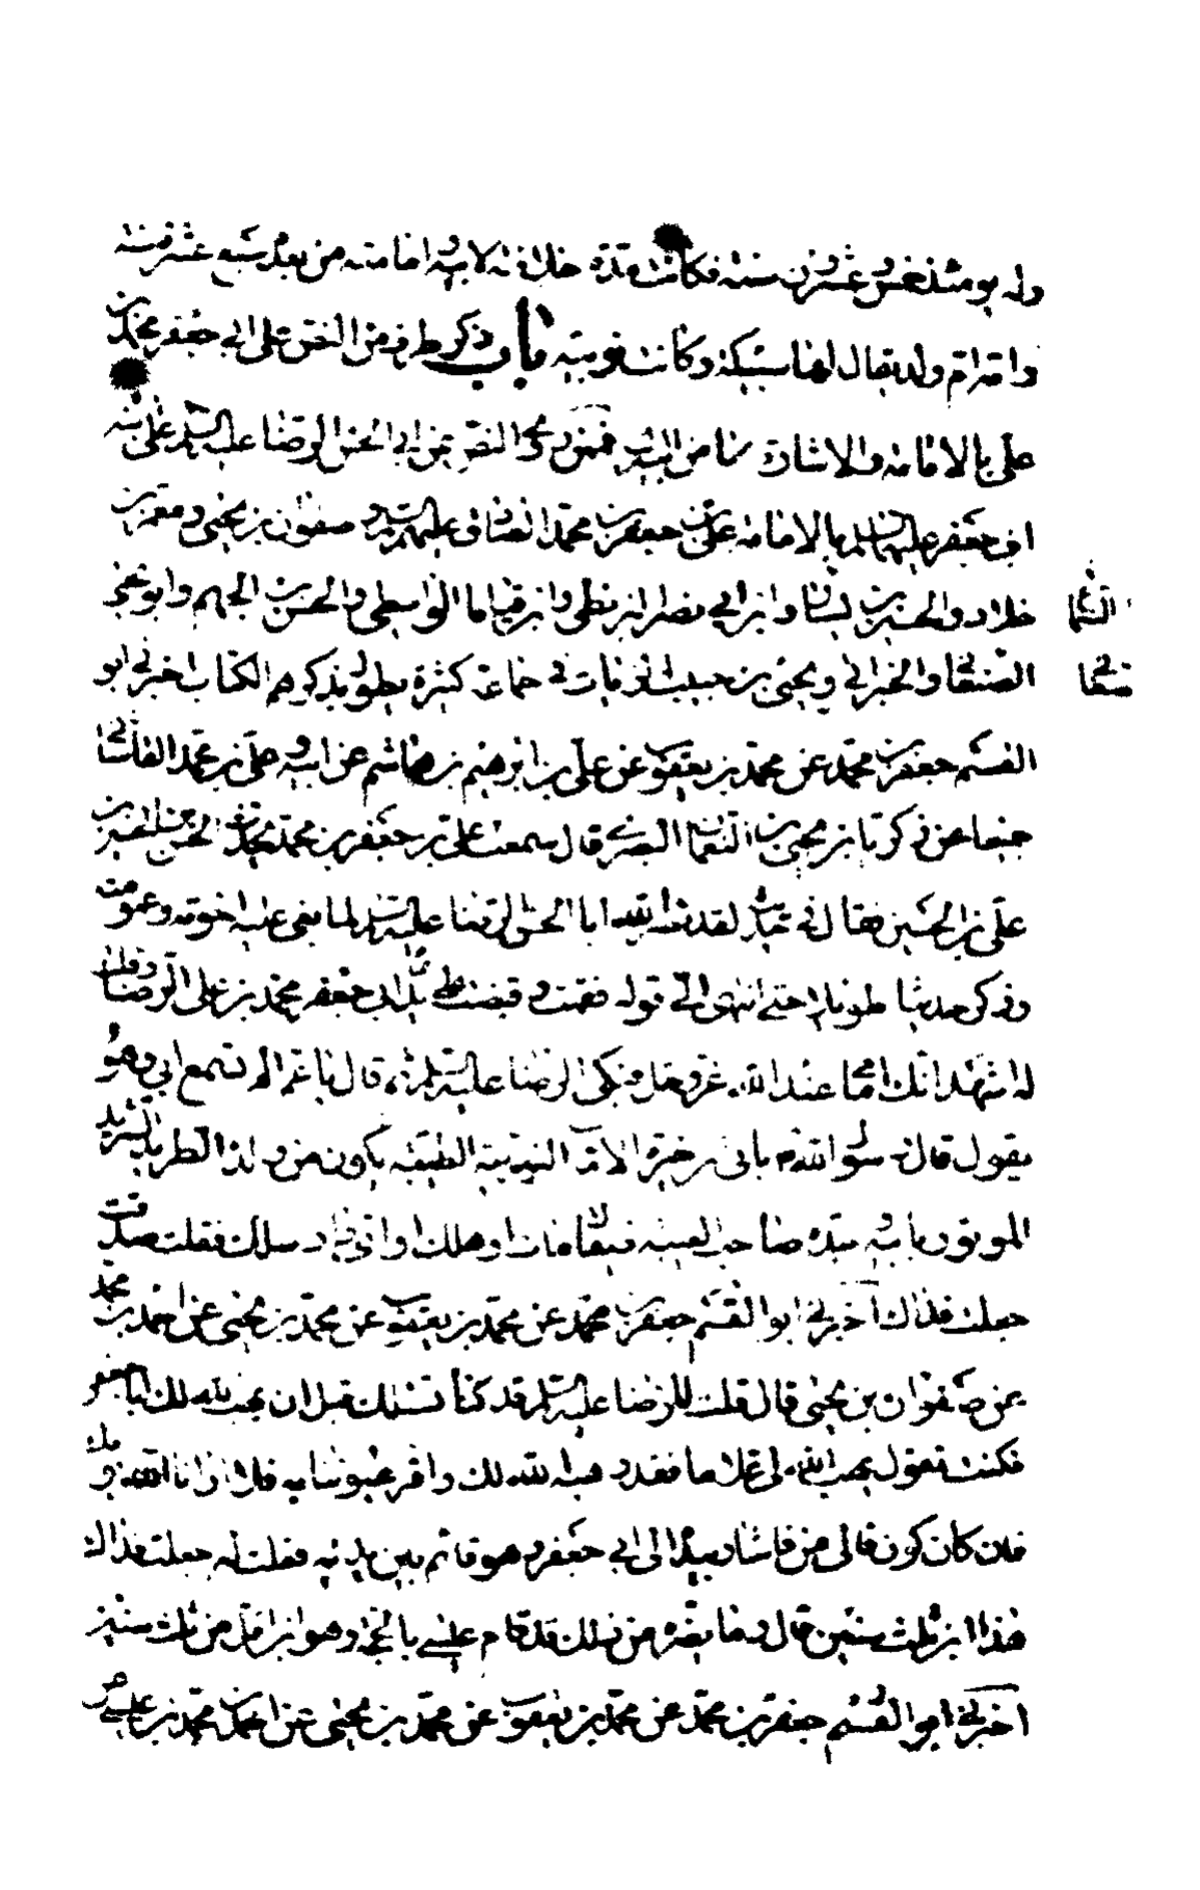 وله يومئذ خمس وعشرون سنة فكانت مدة خلافته لابيه وامامته من بعده سبع عشر سنة
وامه ام ولد يقال لها سبيكة وكانت نوبية باب ذكر طرف من النص على ابي جعفر محمد بن
علي بالامامة والاشارة بها من ابيه اليه فممن روى النص عن ابي الحسن الرضا عليه السلم على ابنه
ابي جعفر عليهما السلم بالامامة علي بن جعفر بن محمد الصادق عليهم السلم وصفوان بن يحيى ومعمر بن
خلاد والحسين بن بشار وابن ابي نصر البزنطي وابن قياما الواسطي والحسن بن الجهم وابو يحيى
الصنعاني والخيراني ويحيى بن حبيب الزيات في جماعة كثيرة يطول بذكرهم الكتاب اخبرني ابو
صنعاني
القسم جعفر بن محمد عن محمد بن يعقوب عن علي بن ابرهيم بن هاشم عن ابيه وعلي بن محمد القاساني
جميعا عن زكريا بن يحيى بن النعمان البصري قال سمعت علي بن جعفر بن محمد يحدث الحسن بن الحسين بن
علي بن الحسين فقال في حديثه لقد نصر الله ابا الحسن الرضا عليه السلم لما بغى عليه اخوته وعمومته
وذكر حديثا طويلا حتى انتهى الى قوله فقمت وقبضت على يد ابي جعفر محمد بن علي الرضا وقلت
له اشهد انك امامي عند الله عز وجل فبكى الرضا عليه السلم ثم قال يا عم الم تسمع ابي وهو
يقول قال رسول الله ص بابي ابن خيرة الاماء النوبية الطيبة يكون من ولده الطريد الشريد
الموتور بابيه وجده صاحب الغيبة فيقال مات او هلك او اي واد سلك فقلت صدقت
جعلت فداك اخبرني ابو القسم جعفر بن محمد عن محمد بن يعقوب عن محمد بن يحيى عن احمد بن محمد
عن صفوان بن يحيى قال قلت للرضا عليه السلم قد كنا نسئلك قبل ان يهب الله لك ابا جعفر
فكنت تقول يهب الله لي غلاما فقد وهبه الله لك واقر عيوننا به فلا ارانا الله يومك
فان كان كون فالى من فاشار بيده الى ابي جعفر وهو قائم بين يديه فقلت له جعلت فداك
هذا ابن ثلث سنين قال وما يضره من ذلك قد قام عيسى بالحجة وهو ابن اقل من ثلث سنين
اخبرني ابو القسم جعفر بن محمد عن محمد بن يعقوب عن محمد بن يحيى عن احمد بن محمد بن عيسى عن